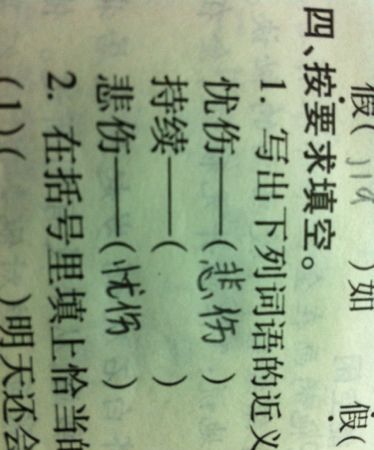 假( jiǎ )如 假(
四、按要求填空。
1. 写出下列词语的近义
忧伤——(悲伤 )
持续——( )
悲伤——(忧伤 )
2. 在括号里填上恰当的
(1)( )明天还会